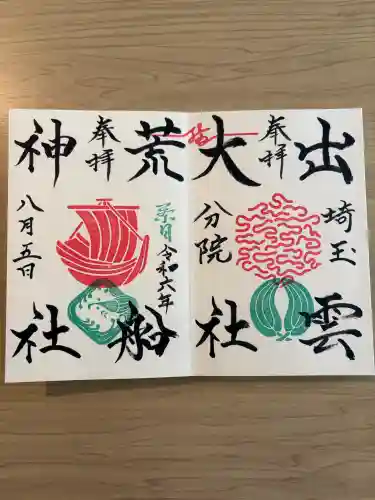 出雲
奉拝
埼玉
大社
分院
結
荒船
奉拝
菜日
令和六年
神社
八月五日